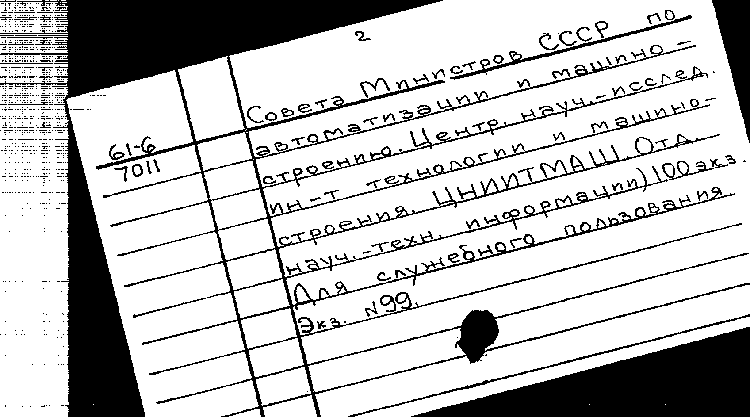 2
Совета Министров СССР по
автоматизации и машино-
строению. Центр. науч.-исслед.
ин-т технологии и машино-
строения. ЦНИИТМАШ. Отд.
науч.-техн. информации) 100 экз.
Для служебного пользования
Экз. N99.
61-6
7011